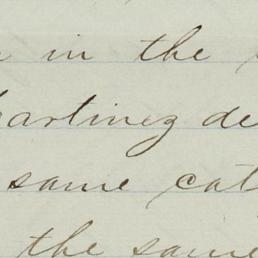 in the
Martinez de
same cat
the same